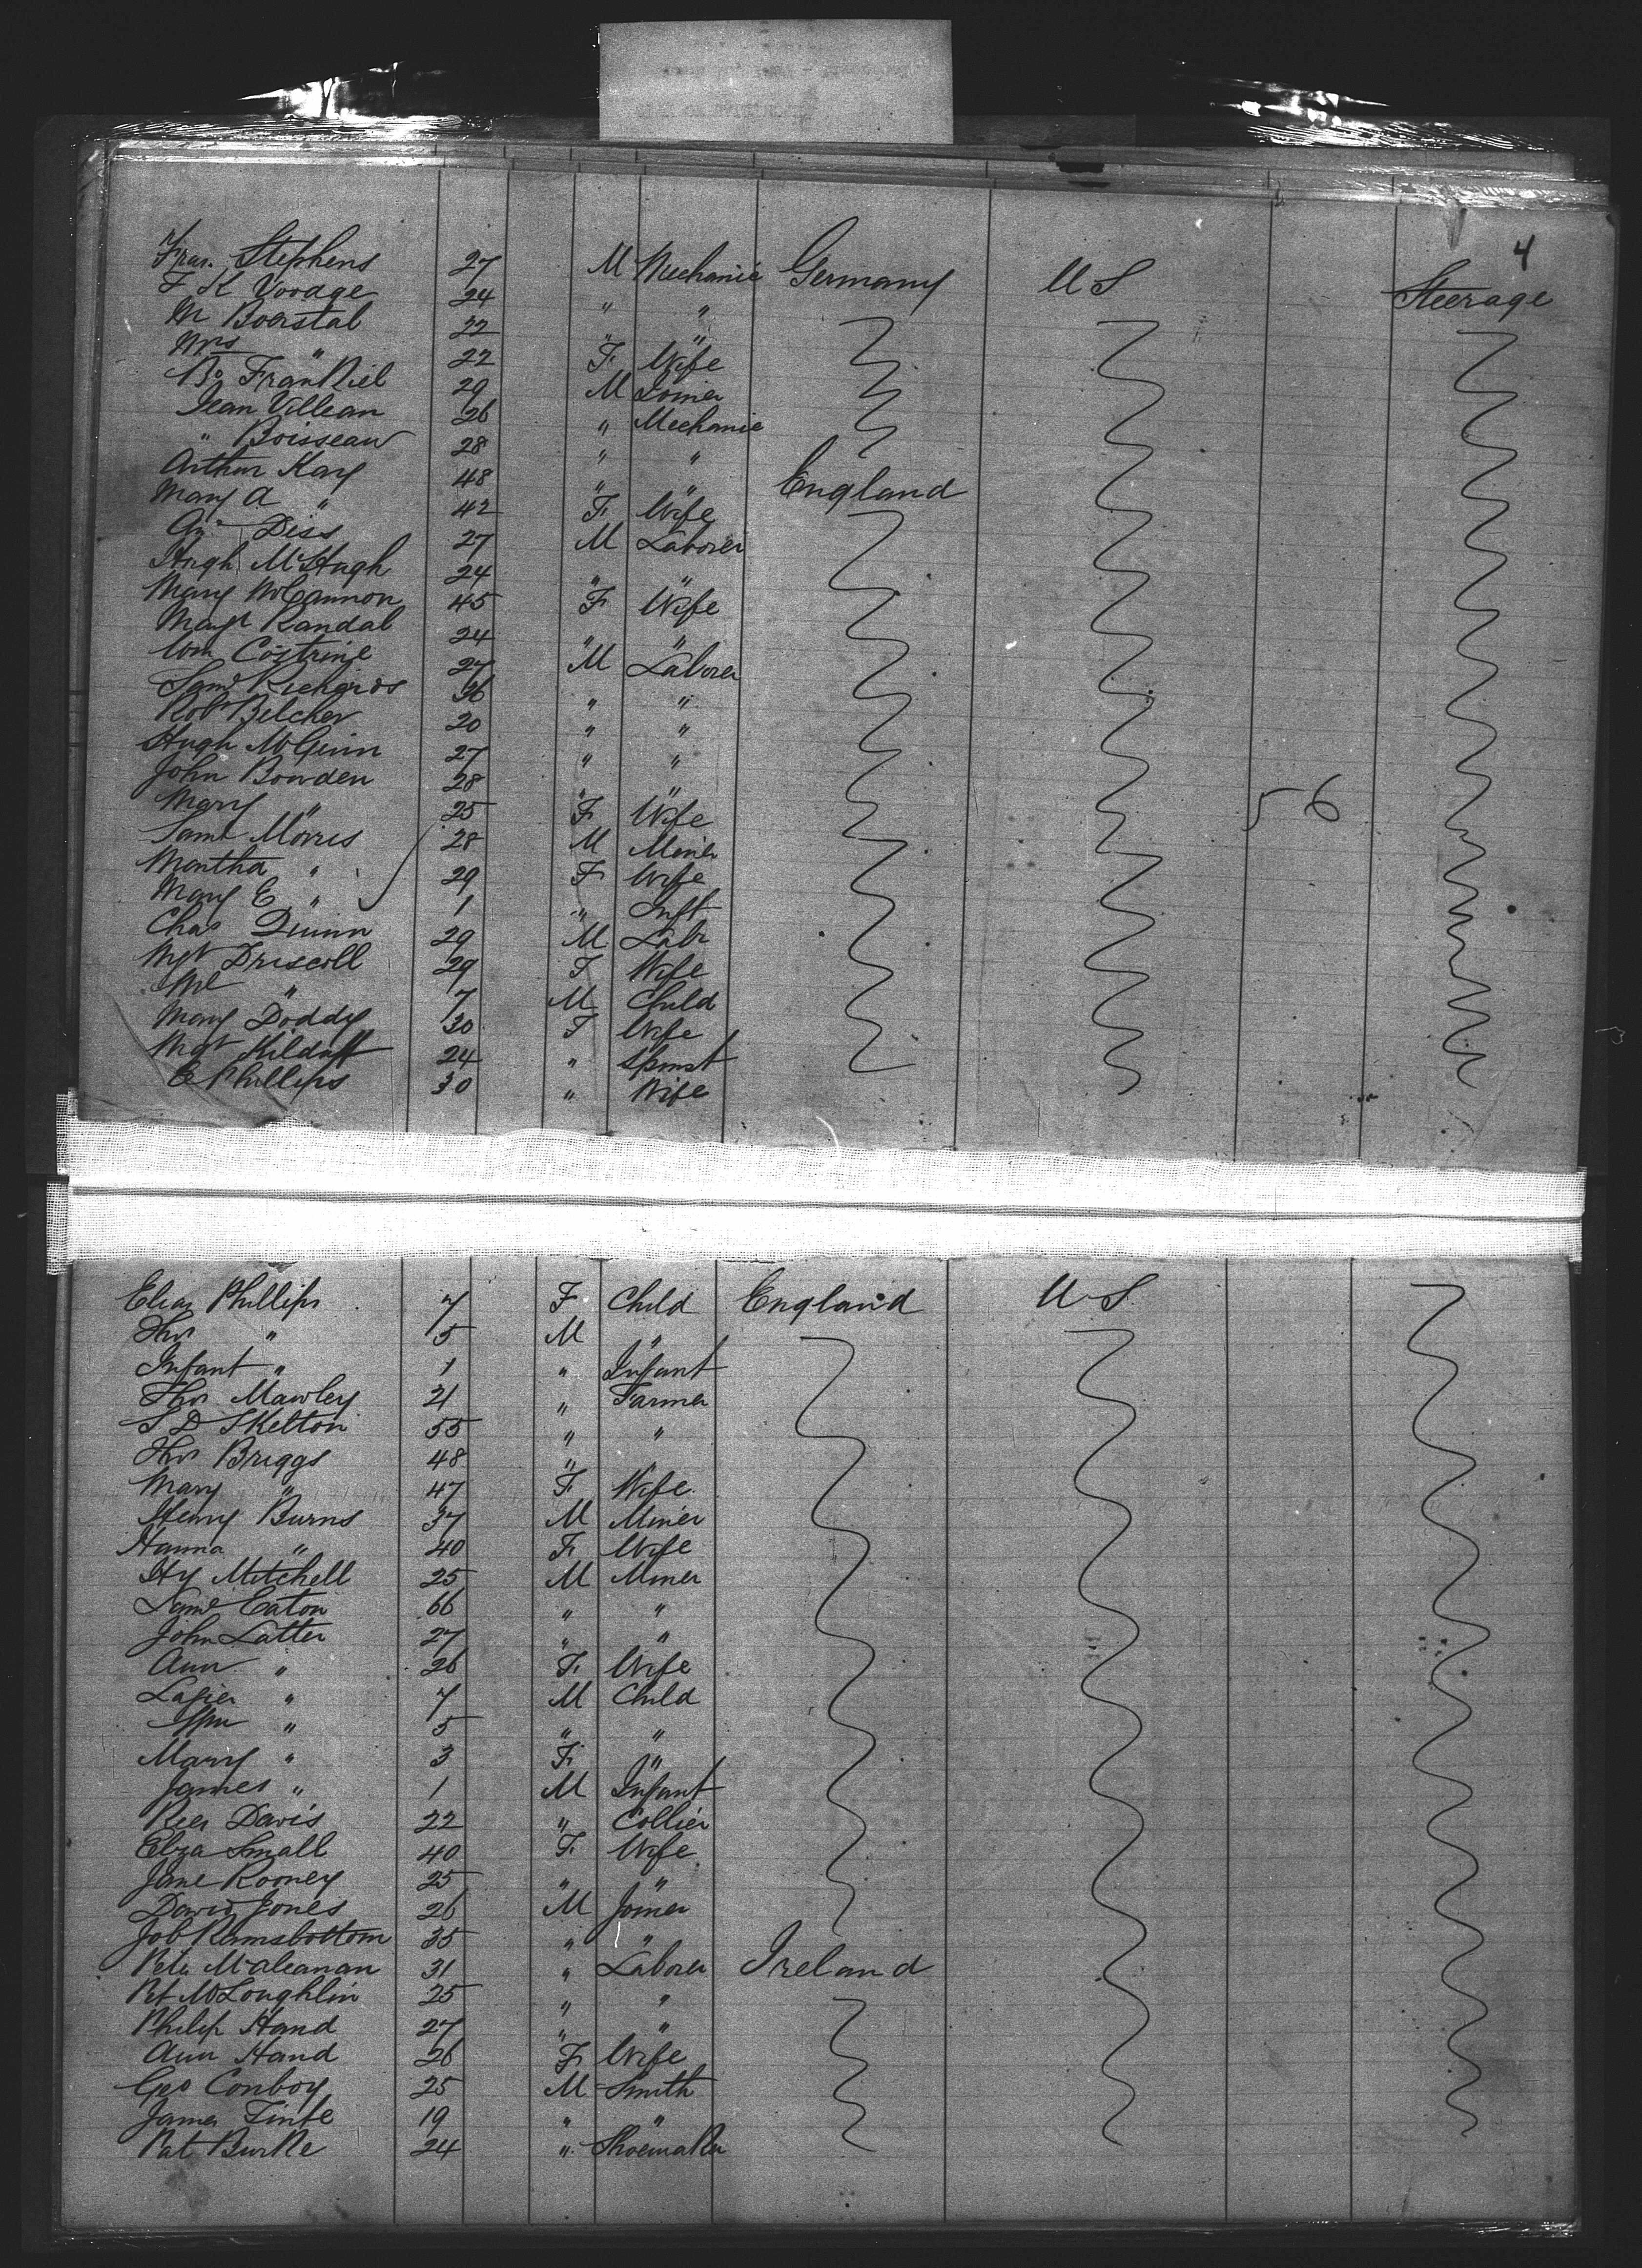 4
Fras. Stephens 27 M Mechanic Germany U S Steerage
F K Voodge 24 " "
M Boerstal 22 " "
Mrs " 22 F Wife
Bo Frankiel 29 M Joiner
Jean Villean 26 " Mechanic
" Boisseau 28 " "
Arthur Kay 48 " " England
Mary A " 42 F Wife
Diss 27 M Laborer
Hugh McHugh 24 " "
Mary McCannon 45 F Wife
Margt Randal 24 " "
Wm 27 M Laborer
Saml Richards 36 " "
Robt Belcher 20 " "
Hugh McGuin 27 " "
John Bowden 28 " "
Mary " 25 F Wife 56
Saml Morris 28 M Miner
Martha " 29 F Wife
Mary E " 1 " Inft
Chas Quinn 29 M Labr
Mgt Driscoll 29 F Wife
Ml " 7 M Child
Mary Doddy 30 F Wife
Mgt 24 " Spinst
E Phillips 30 " Wife
Eliza Phillips 7 F Child England U S
Thos " 5 M "
Infant " 1 " Infant
Thos Mawley 21 " Farmer
S D Skelton 55 " "
Thos Briggs 48 " "
Mary " 47 F Wife
Henry Burns 37 M Miner
Hanna " 40 F Wife
Hy Mitchell 25 M Miner
Saml Eaton 66 " "
John Latter 27 " "
Ann " 26 F Wife
" 7 M Child
Wm " 5 " "
Mary " 3 F "
James " 1 M Infant
Rees Davis 22 " Collier
Eliza Small 40 F Wife
Jane Rooney 25 " "
David Jones 26 M Joiner
Job Ramsbottom 35 " "
Peter McAleanan 31 " Laborer Ireland
Pat McLoughlin 25 " "
Philip Hand 27 " "
Ann Hand 26 F Wife
Geo Conboy 25 M Smith
James 19 " "
Pat Burke 24 " Shoemaker